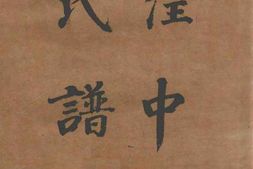 中
氏譜